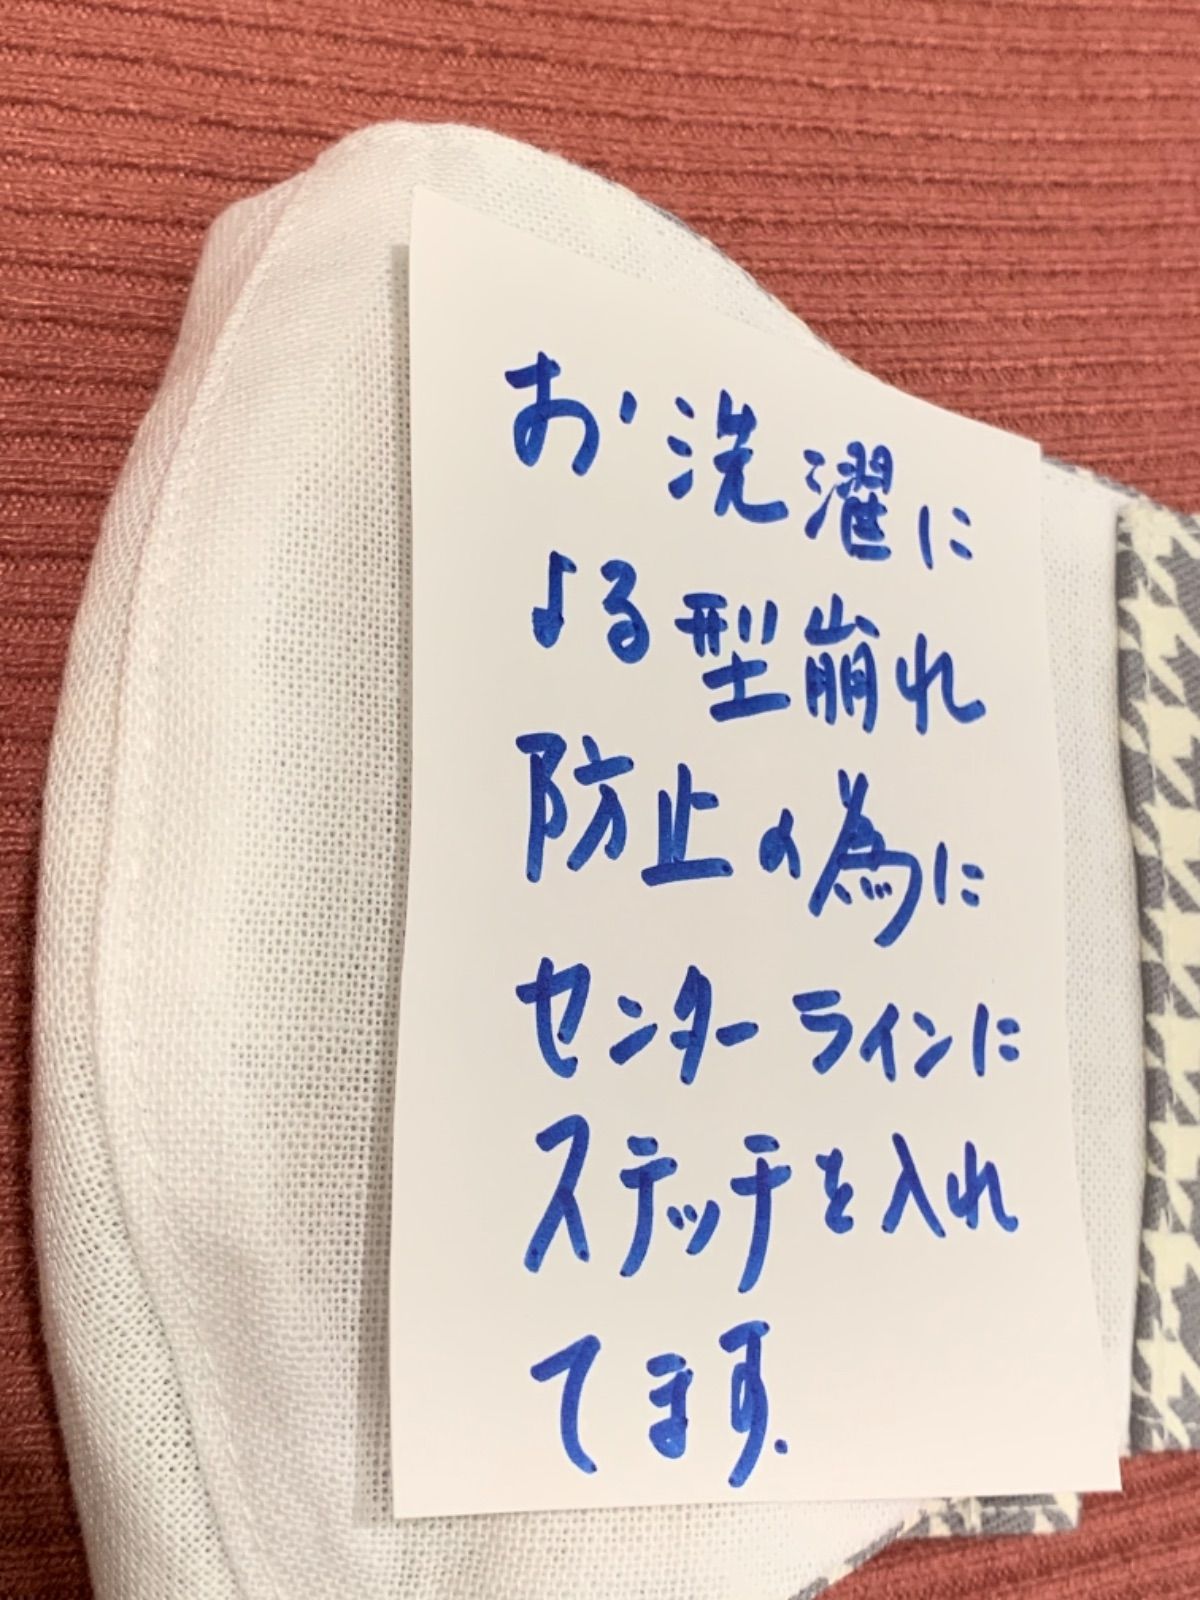 お洗濯に
よる型崩れ
防止の為に
センターラインに
ステッチを入れ
てます.